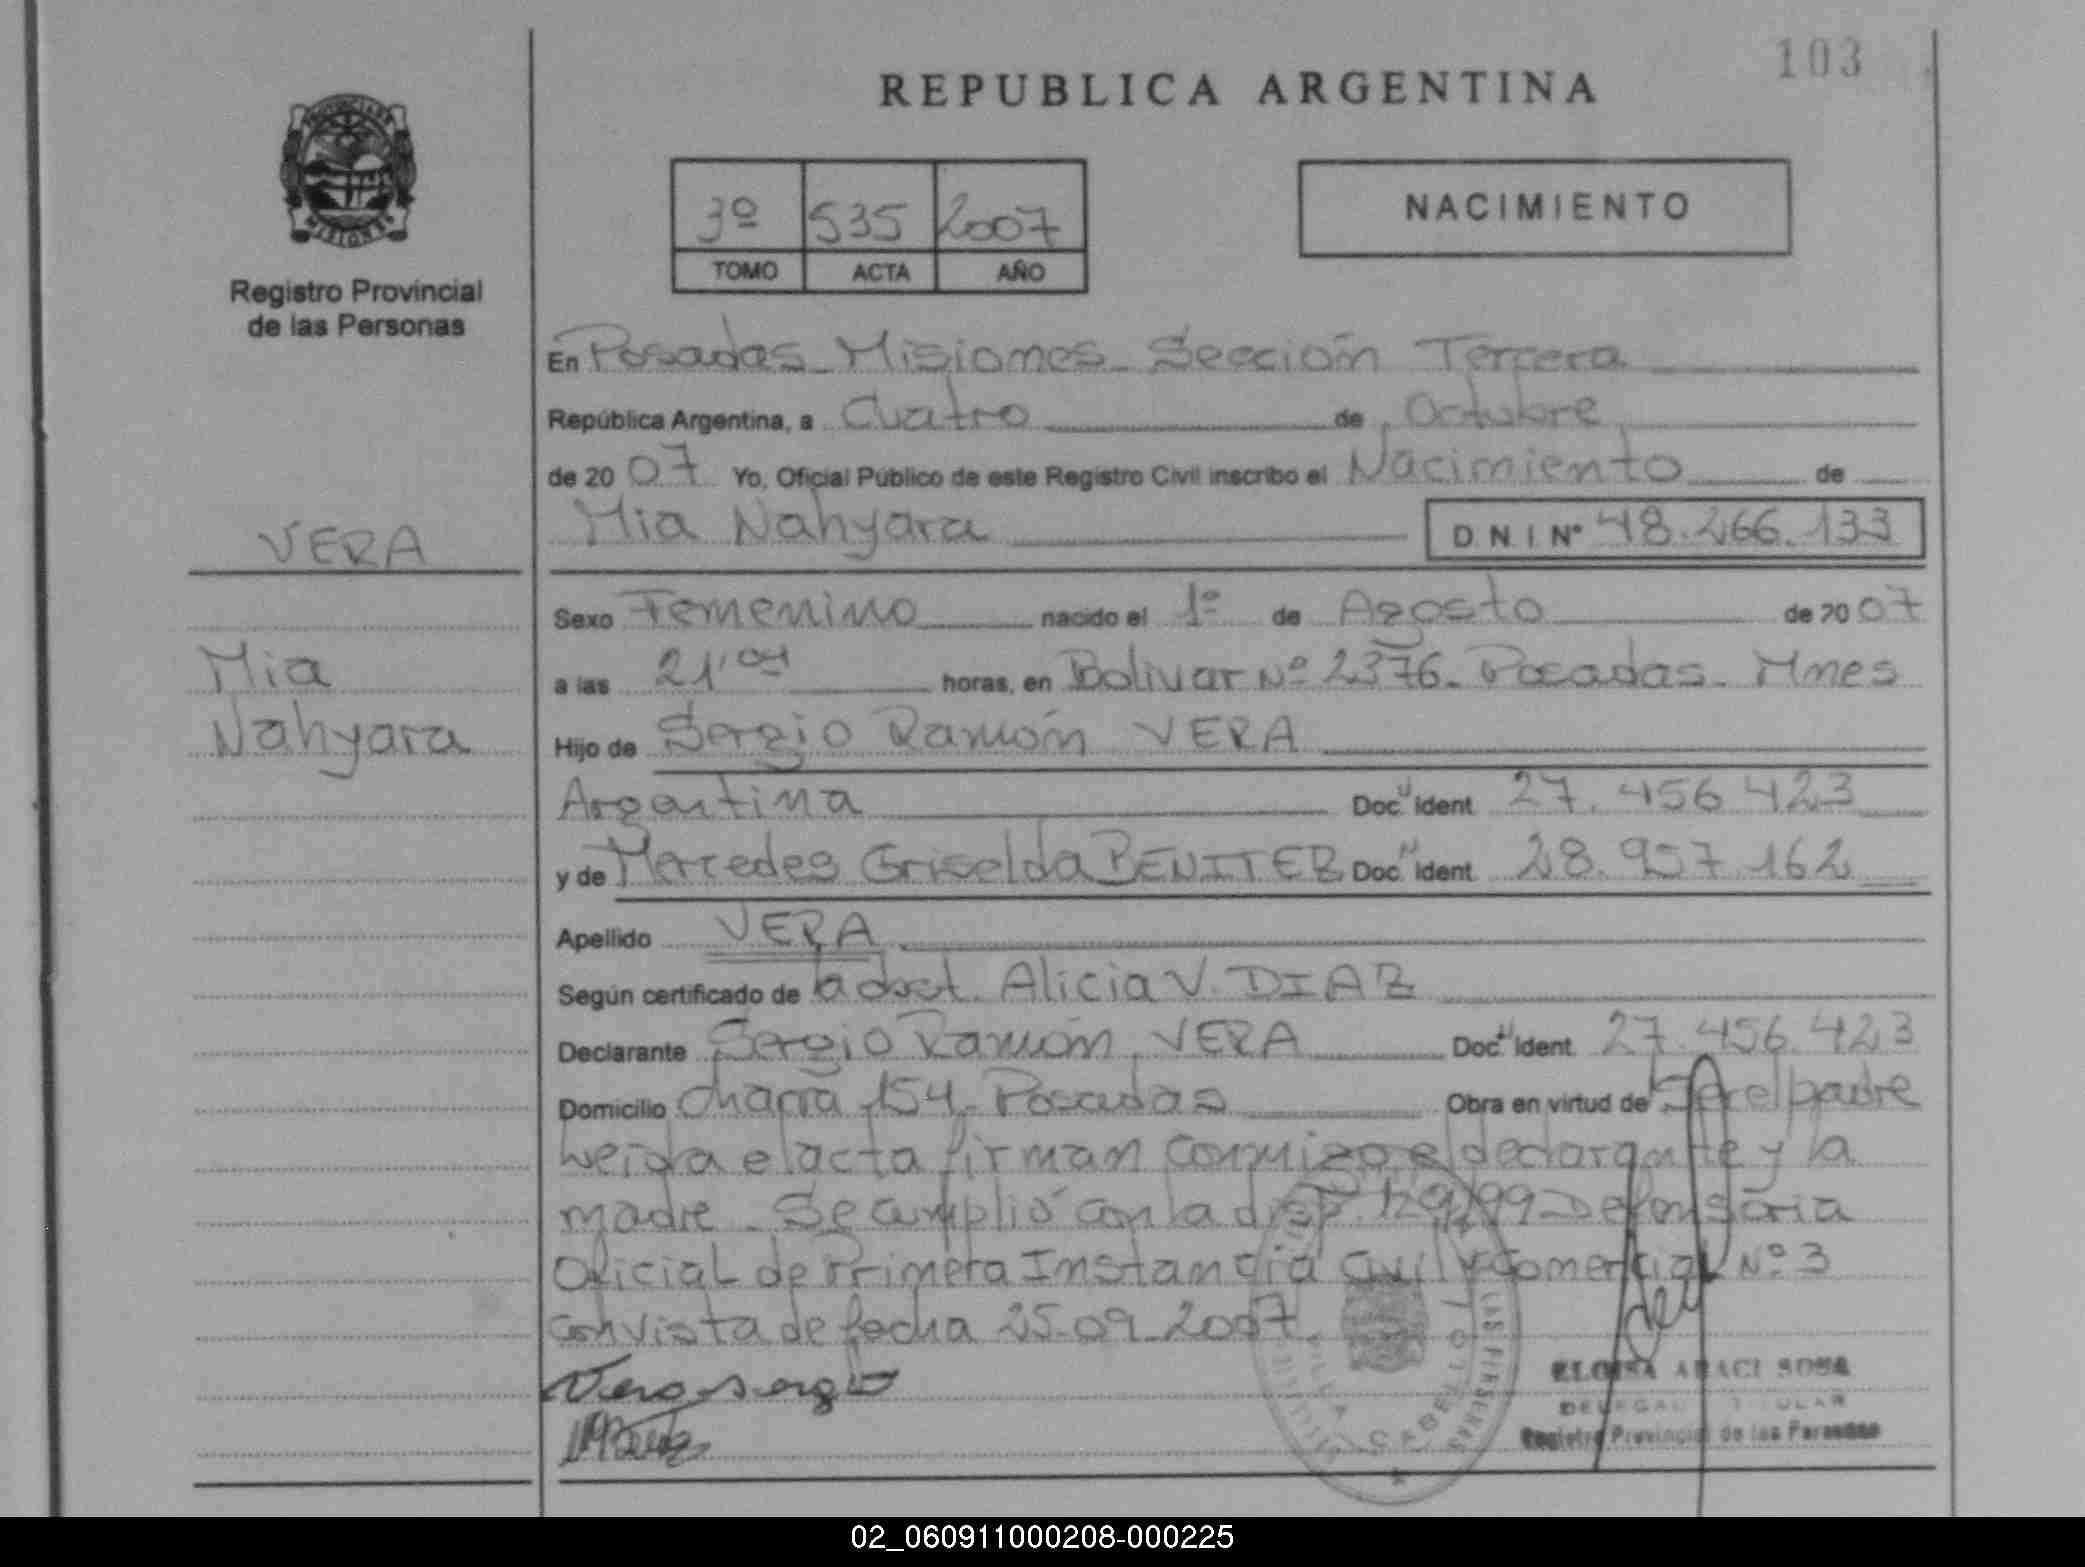 103
REPUBLICA ARGENTINA
PROVINCIA DE
MISIONES
Registro Provincial
de las Personas
3º 535 2007
TOMO ACTA AÑO
NACIMIENTO
En Posadas Misiones Sección Tercera
República Argentina, a Cuatro de Octubre
de 20 07 Yo, Oficial Público de este Registro Civil inscribo el Nacimiento de
Mia Nahyara D.N.I. Nº 48.266.133
VERA
Mia
Nahyara
Sexo Femenino nacido el 1º de Agosto de 20 07
a las 21, horas, en Bolivar Nº 2376- Posadas- Mnes
Hijo de Sergio Ramón VERA
Argentina Doc. Ident. 27.456 423
y de Mercedes Griselda BENITEZ Doc. Ident. 28.957.162
Apellido VERA
Según certificado de la obst. Alicia V. DIAZ
Declarante Sergio Ramón VERA Doc. Ident. 27.456.423
Domicilio Chacra 154- Posadas Obra en virtud de Ser el padre
Leida el acta firman conmigo el declarante y la
madre. Se cumplió con la disp. 129/99- Defensoria
Oficial de Primera Instancia Civil y Comercial Nº 3
con vista de fecha 25-09-2007
Vera Sergio
ELOISA ARACI SOSA
DELEGADA TITULAR
Registro Provincial de las Personas
02_060911000208-000225